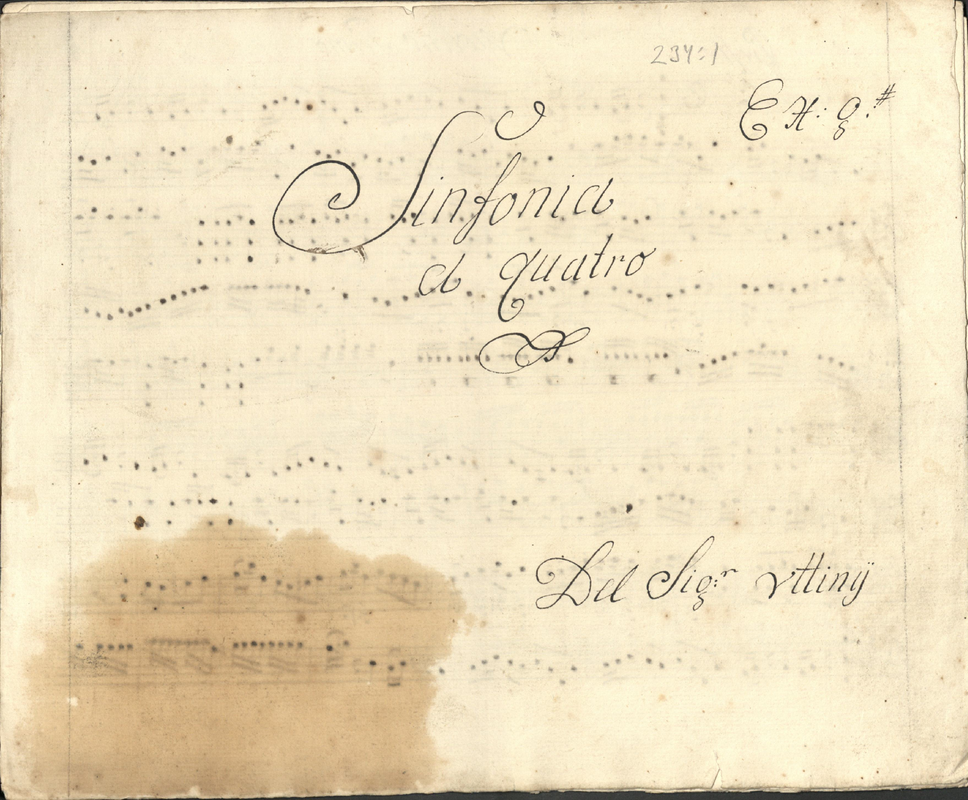 234:1
Ex: g.#
Sinfonia
a quatro
Del Sig:r Vttinÿ